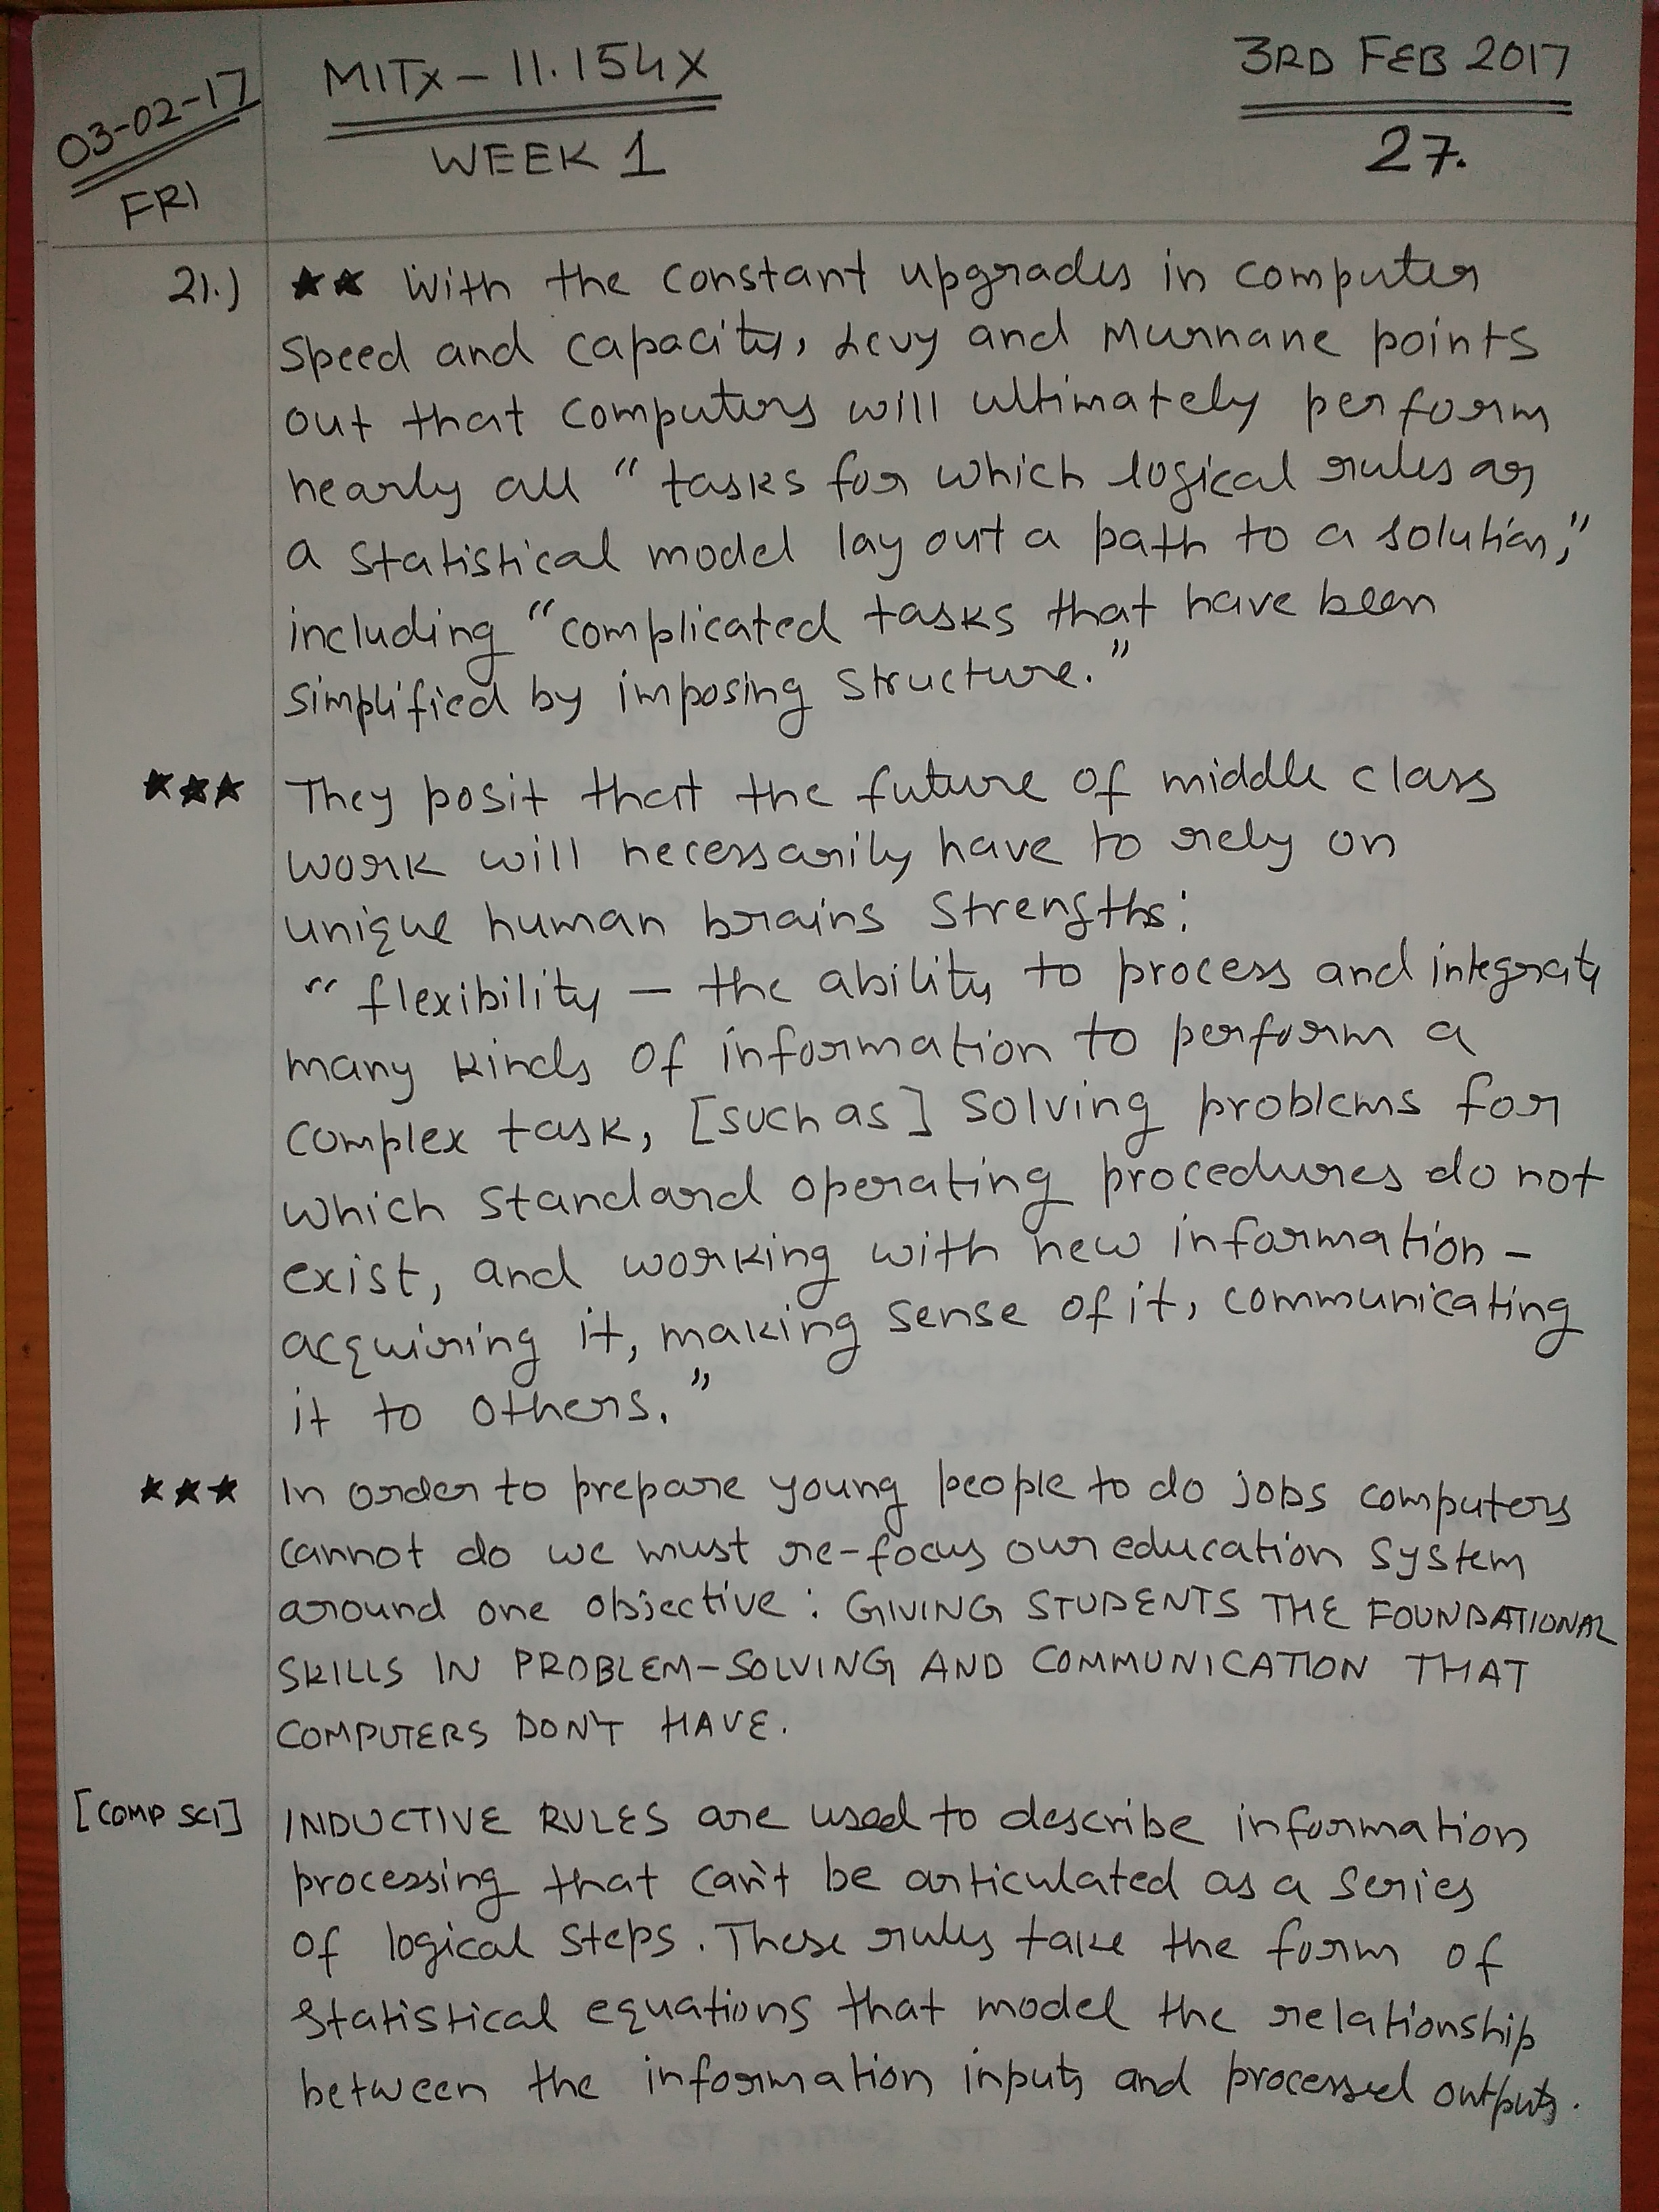 03-02-17
FRI
MITx - 11.154x
WEEK 1
3RD FEB 2017
27.
21.) ★★ With the constant upgrades in computer
speed and capacity, Levy and Murnane points
out that computers will ultimately perform
nearly all "tasks for which logical rules or
a statistical model lay out a path to a solution,"
including "complicated tasks that have been
simplified by imposing structure."
★★★ They posit that the future of middle class
work will necessarily have to rely on
unique human brains strengths:
"flexibility — the ability to process and integrate
many kinds of information to perform a
complex task, [such as] solving problems for
which standard operating procedures do not
exist, and working with new information -
acquiring it, making sense of it, communicating
it to others."
★★★ In order to prepare young people to do jobs computers
cannot do we must re-focus our education system
around one objective: GIVING STUDENTS THE FOUNDATIONAL
SKILLS IN PROBLEM-SOLVING AND COMMUNICATION THAT
COMPUTERS DON'T HAVE.
[COMP SCI] INDUCTIVE RULES are used to describe information
processing that can't be articulated as a series
of logical steps. These rules take the form of
statistical equations that model the relationship
between the information inputs and processed outputs.